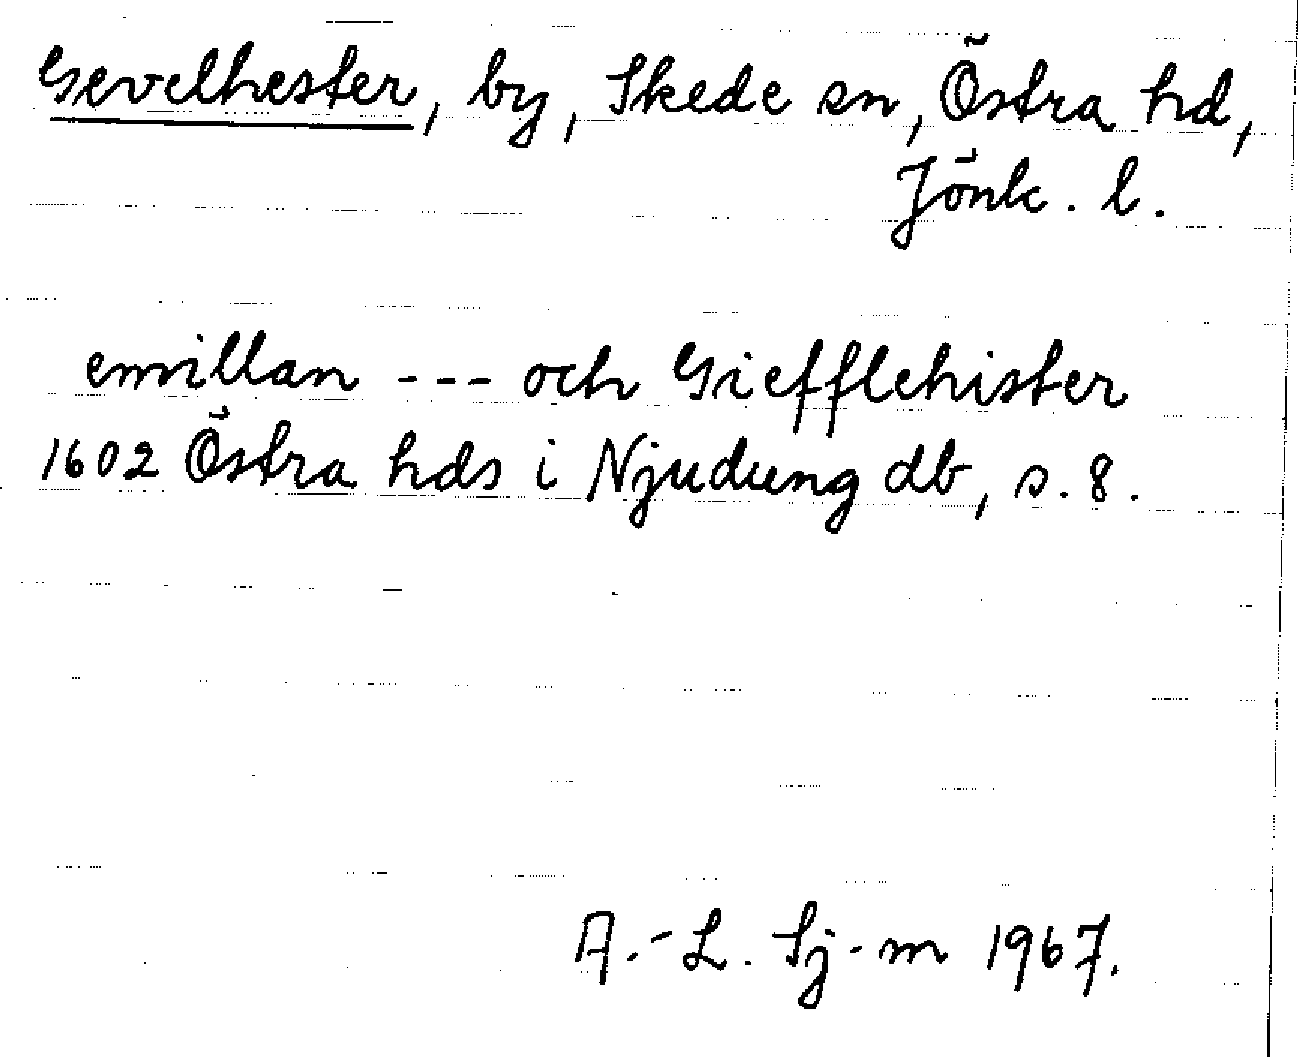 Gevelhester, by, Skede sn, Östra hd,
Jönk. l.
emillan --- och Giefflehister
1602 Östra hds i Njudung db, s. 8.
A.-L. Sj-m 1967.